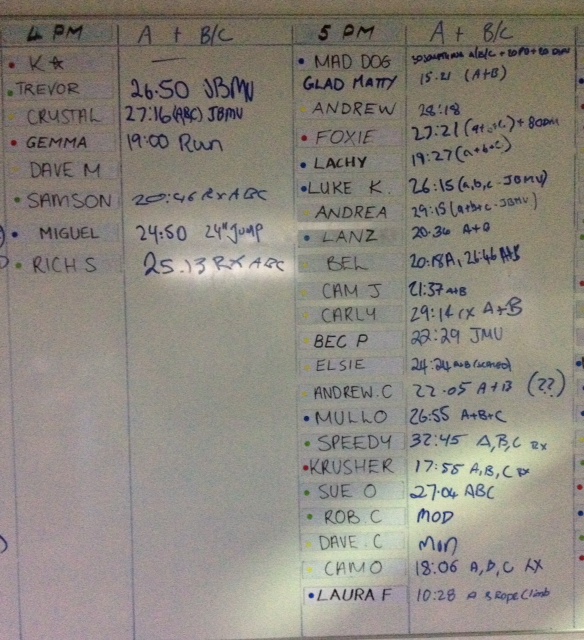 4 PM A + B/C
K
TREVOR 26:50 JBMU
CRYSTAL 27:16 (ABC) JBMU
GEMMA 19:00 Run
DAVE M
SAMSON 20:46 RX ABC
MIGUEL 24:50 24" Jump
RICH S 25.13 RX ABC
5 PM A + B/C
MAD DOG
GLAD MATTY 15.21 (A+B)
ANDREW 28:18
FOXIE 27:21 (a+b+c) + 800m
LACHY 19:27 (a+b+c)
LUKE K. 26:15 (a,b,c - JBMU)
ANDREA 29:15 (a+b+c - JBMU)
LANZ 20.36 A+B
BEL 20:18A, 26:46 A+B
CAM J 21:37 A+B
CARLY 29:14 rx A+B
BEC P 22:29 JMU
ELSIE 24:24 A+B (scaled)
ANDREW. C 22.05 A+B (??)
MULLO 26:55 A+B+C
SPEEDY 32:45 A,B,C RX
KRUSHER 17:55 A,B,C RX
SUE O 27.04 ABC
ROB C MOD
DAVE C
CAMO 18:06 A,B,C RX
LAURA F 10:28 A B Rope Climb